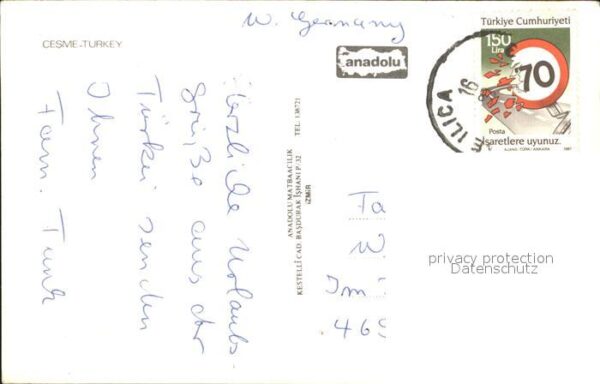 W. Germany
CEŞME-TURKEY
anadolu
Türkiye Cumhuriyeti
150
Lira
70
Posta
İşaretlere uyunuz.
1987
ILICA
16
Herzliche Urlaubs-
grüße aus der
Türkei senden
Ihnen
Fam.
ANADOLU MATBAACILIK
KESTELLİ CAD. BAŞDURAK İŞHANI P/32 TEL: 138721
İZMİR
Ta
W.
Im
privacy protection
Datenschutz